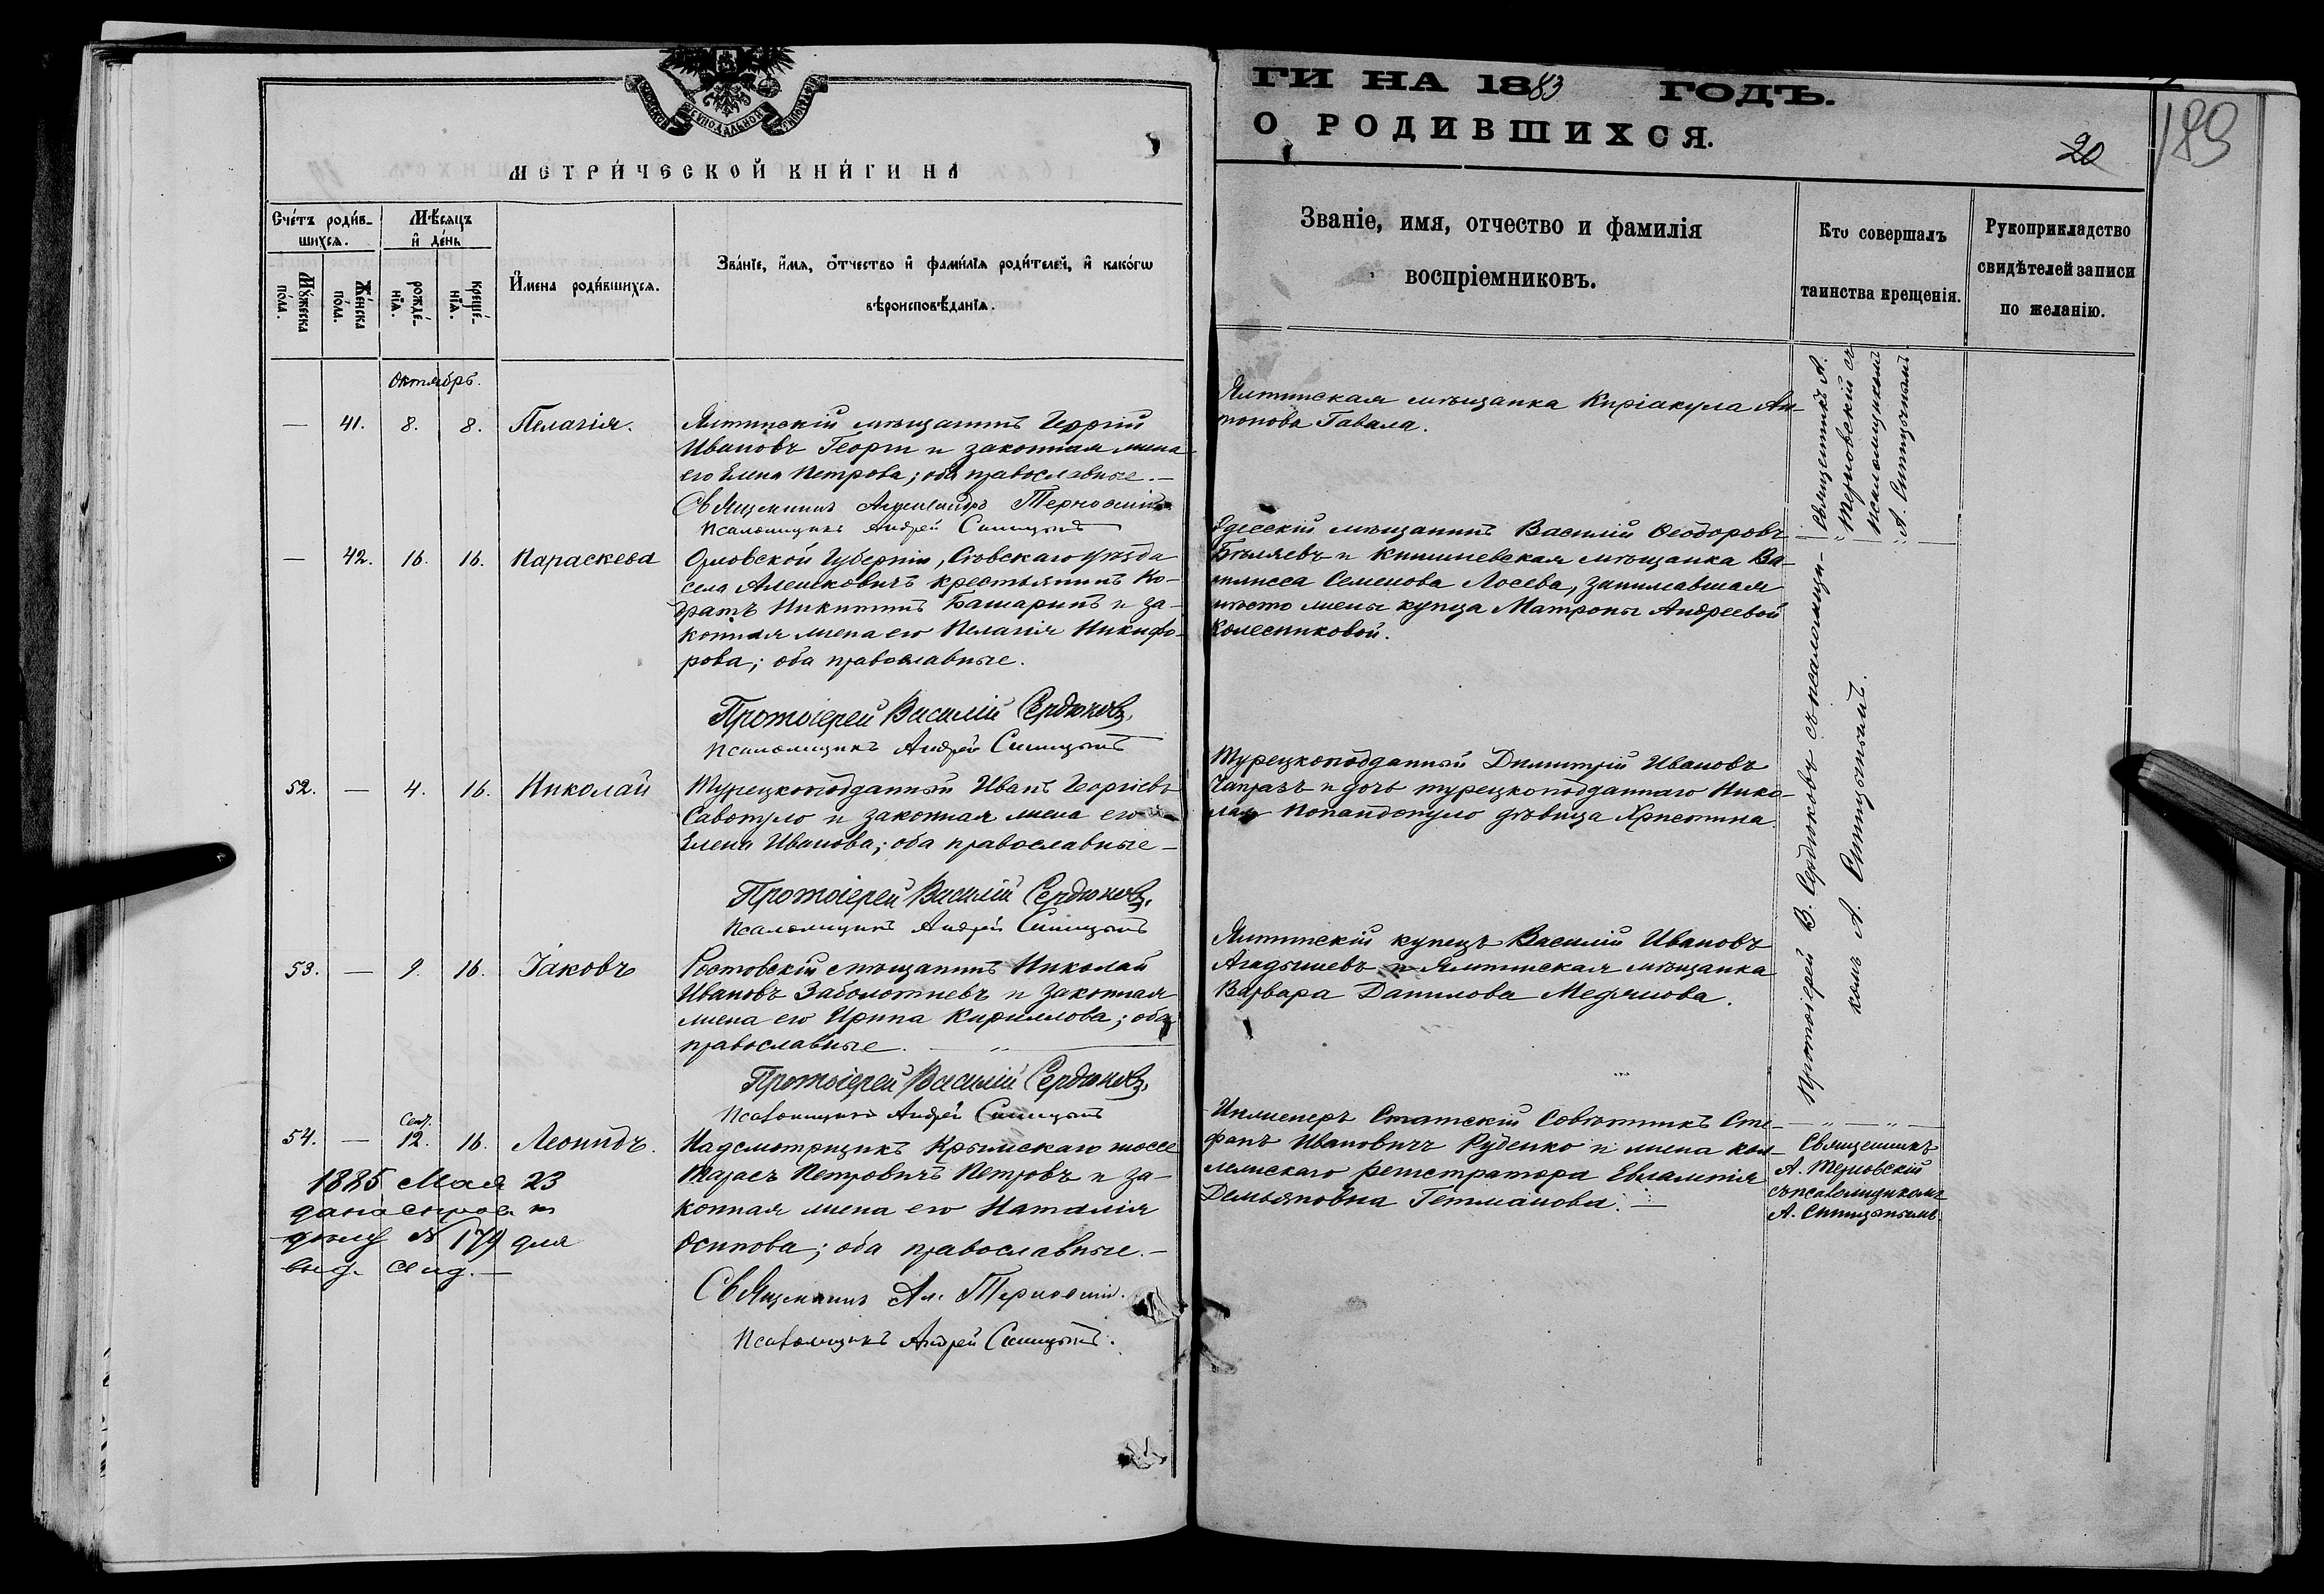 МЕТРИЧЕСКОЙ КНИГИ НА
Счетъ родив-
шихся.
Мѣсяцъ
и день
Мужеска
пола.
Женска
пола.
рожде-
нія.
креще-
нія.
Имена родившихся.
Званіе, имя, отчество и фамилія родителей, и какого
вѣроисповѣданія.
Октябрь.
— 41. 8. 8. Пелагія.
Ялтинскій мѣщанинъ Георгій
Ивановъ Георги и законная жена
его Елена Петрова; оба православные.—
Священникъ Александръ Терновскій
Псаломщикъ Андрей Синицынъ
— 42. 16. 16. Параскева
Орловской Губерніи, Сѣвскаго уѣзда
села Алешковичъ крестьянинъ Ко-
дратъ Никитинъ Башаринъ и за-
конная жена его Пелагія Никифо-
рова; оба православные.
Протоіерей Василій Сердюковъ.
Псаломщикъ Андрей Синицынъ
52. — 4. 16. Николай
Турецкоподданный Иванъ Георгіевъ
Савопуло и законная жена его
Елена Иванова; оба православные —
Протоіерей Василій Сердюковъ.
Псаломщикъ Андрей Синицынъ
53. — 9. 16. Іаковъ
Ростовскій мѣщанинъ Николай
Ивановъ Заболотневъ и законная
жена его Ирина Кириллова; оба
православные.
Протоіерей Василій Сердюковъ.
Псаломщикъ Андрей Синицынъ
Сент.
54. — 12. 16. Леонидъ.
Надсмотрщикъ Крымскаго шоссе
Тарасъ Петровичъ Петровъ и за-
конная жена его Наталія
Осипова; оба православные.—
Священникъ Ал. Терновскій.
Псаломщикъ Андрей Синицынъ.
1885 Мая 23
дана справ. къ
дѣлу № 179 для
выд. свид.—
ГИ НА 1883 ГОДЪ.
О РОДИВШИХСЯ.
20
189
Званіе, имя, отчество и фамилія
воспріемниковъ.
Кто совершалъ
таинства крещенія.
Рукоприкладство
свидѣтелей записи
по желанію.
Ялтинская мѣщанка Киріакула Ан-
тонова Гавала.
Священникъ А.
Терновскій съ
псаломщикомъ
А. Синицынымъ
Одесскій мѣщанинъ Василій Ѳеодоровъ
Бѣляевъ и Кишиневская мѣщанка Ва-
силисса Семенова Лосева, занимавшая
мѣсто жены купца Матроны Андреевой
Колесниковой.
Турецкоподданный Димитрій Ивановъ
Чапразъ и дочь турецкоподданнаго Нико-
лая Попандопуло дѣвица Христина.
Ялтинскій купецъ Василій Ивановъ
Агадышевъ и Ялтинская мѣщанка
Варвара Данилова Медянова.
Протоіерей В. Сердюковъ съ псаломщи-
комъ А. Синицынымъ.
Инженеръ Статскій Совѣтникъ Сте-
фанъ Ивановичъ Руденко и жена кол-
лежскаго регистратора Евлампія
Демьяновна Гетманова.—
Священникъ
А. Терновскій
съ псаломщикомъ
А. Синицынымъ.